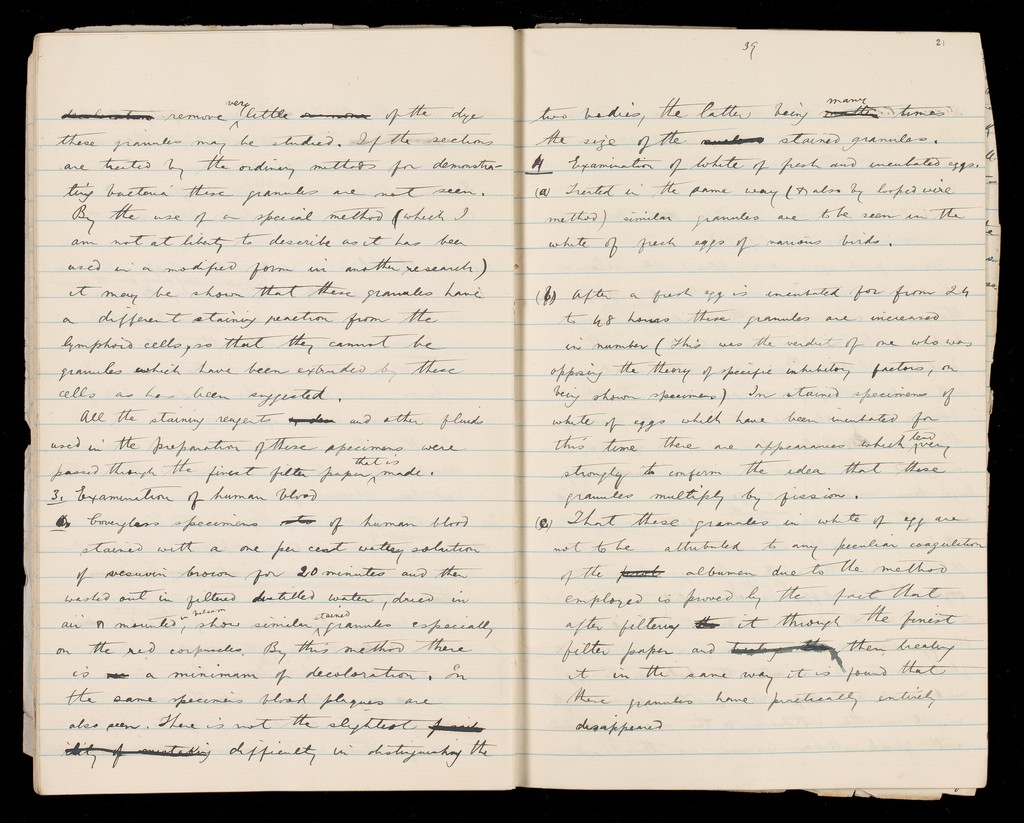 remove very little of the dye
these granules may be studied. If the sections
are treated by the ordinary methods for demonstra-
ting bacteria these granules are not seen.
By the use of a special method (which I
am not at liberty to describe as it has been
used in a modified form in another research)
it may be shown that these granules have
a different staining reaction from the
lymphoid cells, so that they cannot be
granules which have been extruded by these
cells as has been suggested.
All the staining reagents and other fluids
used in the preparation of these specimens were
passed through the finest filter paper that is made.
3. Examination of human blood
Coverglass specimens of human blood
stained with a one per cent watery solution
of vesuvin brown for 20 minutes and then
washed out in filtered distilled water, dried in
air & mounted in balsam, show similar stained granules especially
on the red corpuscles. By this method there
is a minimum of decoloration. In
the same specimens blood plaques are
also seen. There is not the slightest
difficulty in distinguishing the
39
21
two bodies, the latter being many times
the size of the stained granules.
4 Examination of white of fresh and incubated eggs.
(a) Treated in the same way (& also by looped wire
method) similar granules are to be seen in the
white of fresh eggs of various birds.
(b) After a fresh egg is incubated for from 24
to 48 hours these granules are increased
in number (This was the verdict of one who was
opposing the theory of specific inhibitory factors, on
being shown specimens) In stained specimens of
white of eggs which have been incubated for
this time there are appearances which lend very
strongly to confirm the idea that these
granules multiply by fission.
(c) That these granules in white of egg are
not to be attributed to any peculiar coagulation
of the albumen due to the method
employed is proved by the fact that
after filtering it through the finest
filter paper and then treating
it in the same way it is found that
these granules have practically entirely
disappeared